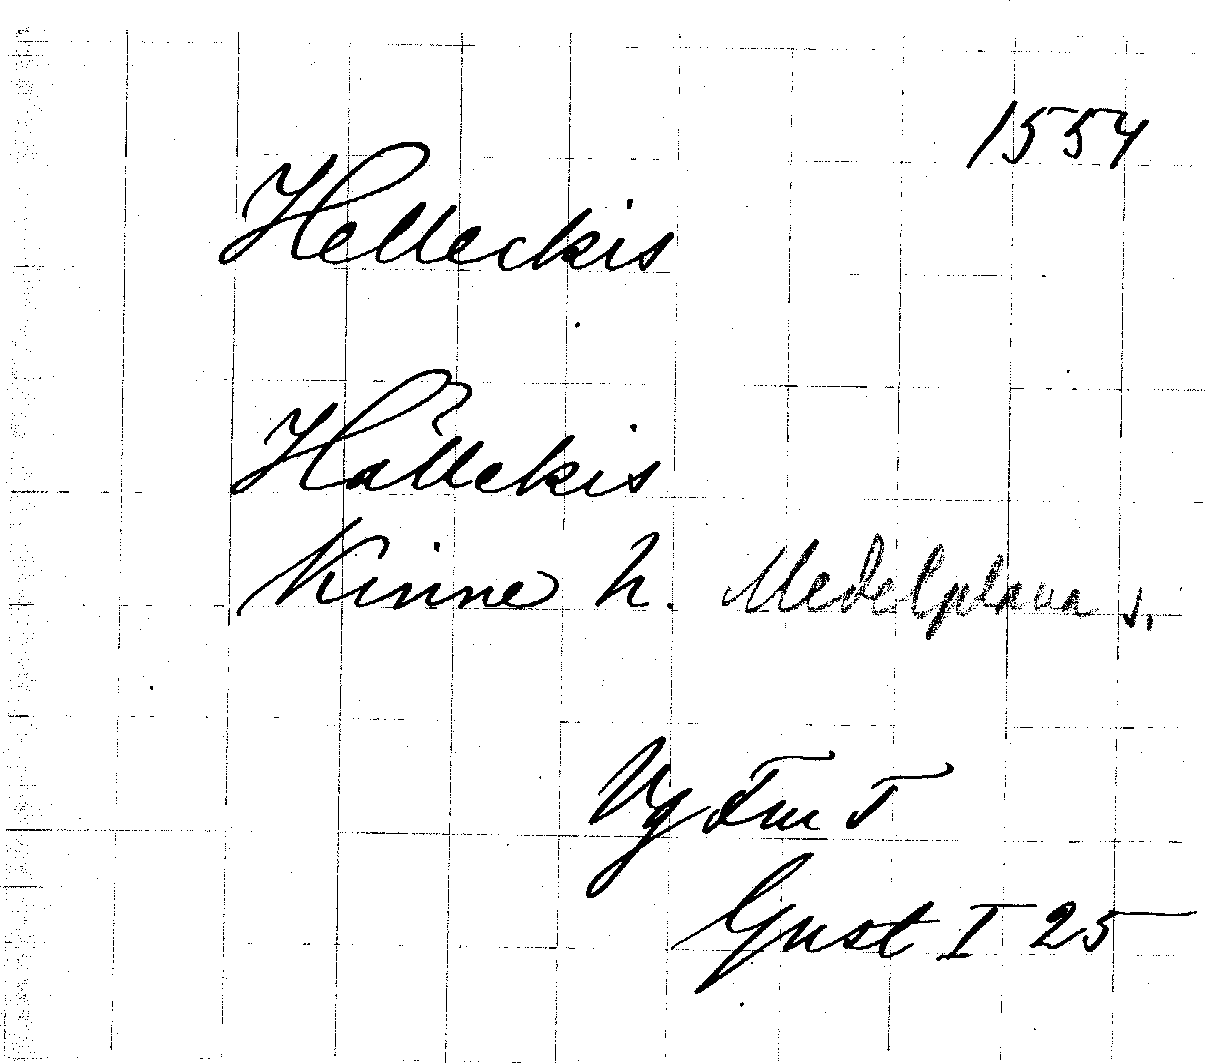 1554
Helleckis
Hällekis
Kinne h. Medelplana s.
Vg Fm F
Gust I 25